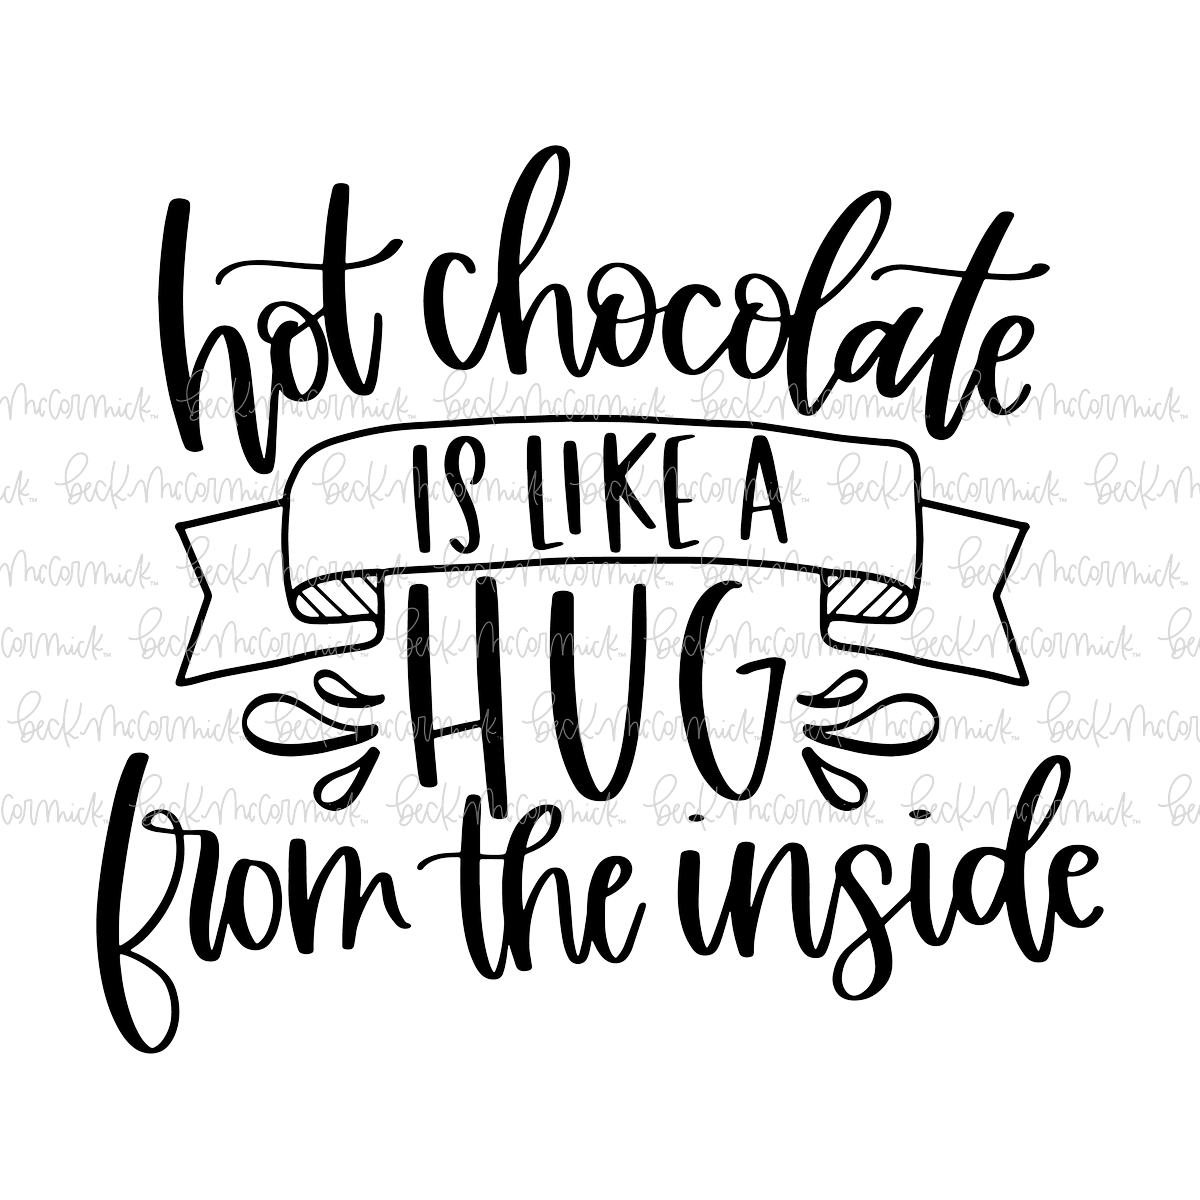 hot chocolate
IS LIKE A
HUG
from the inside
beck mccormick™